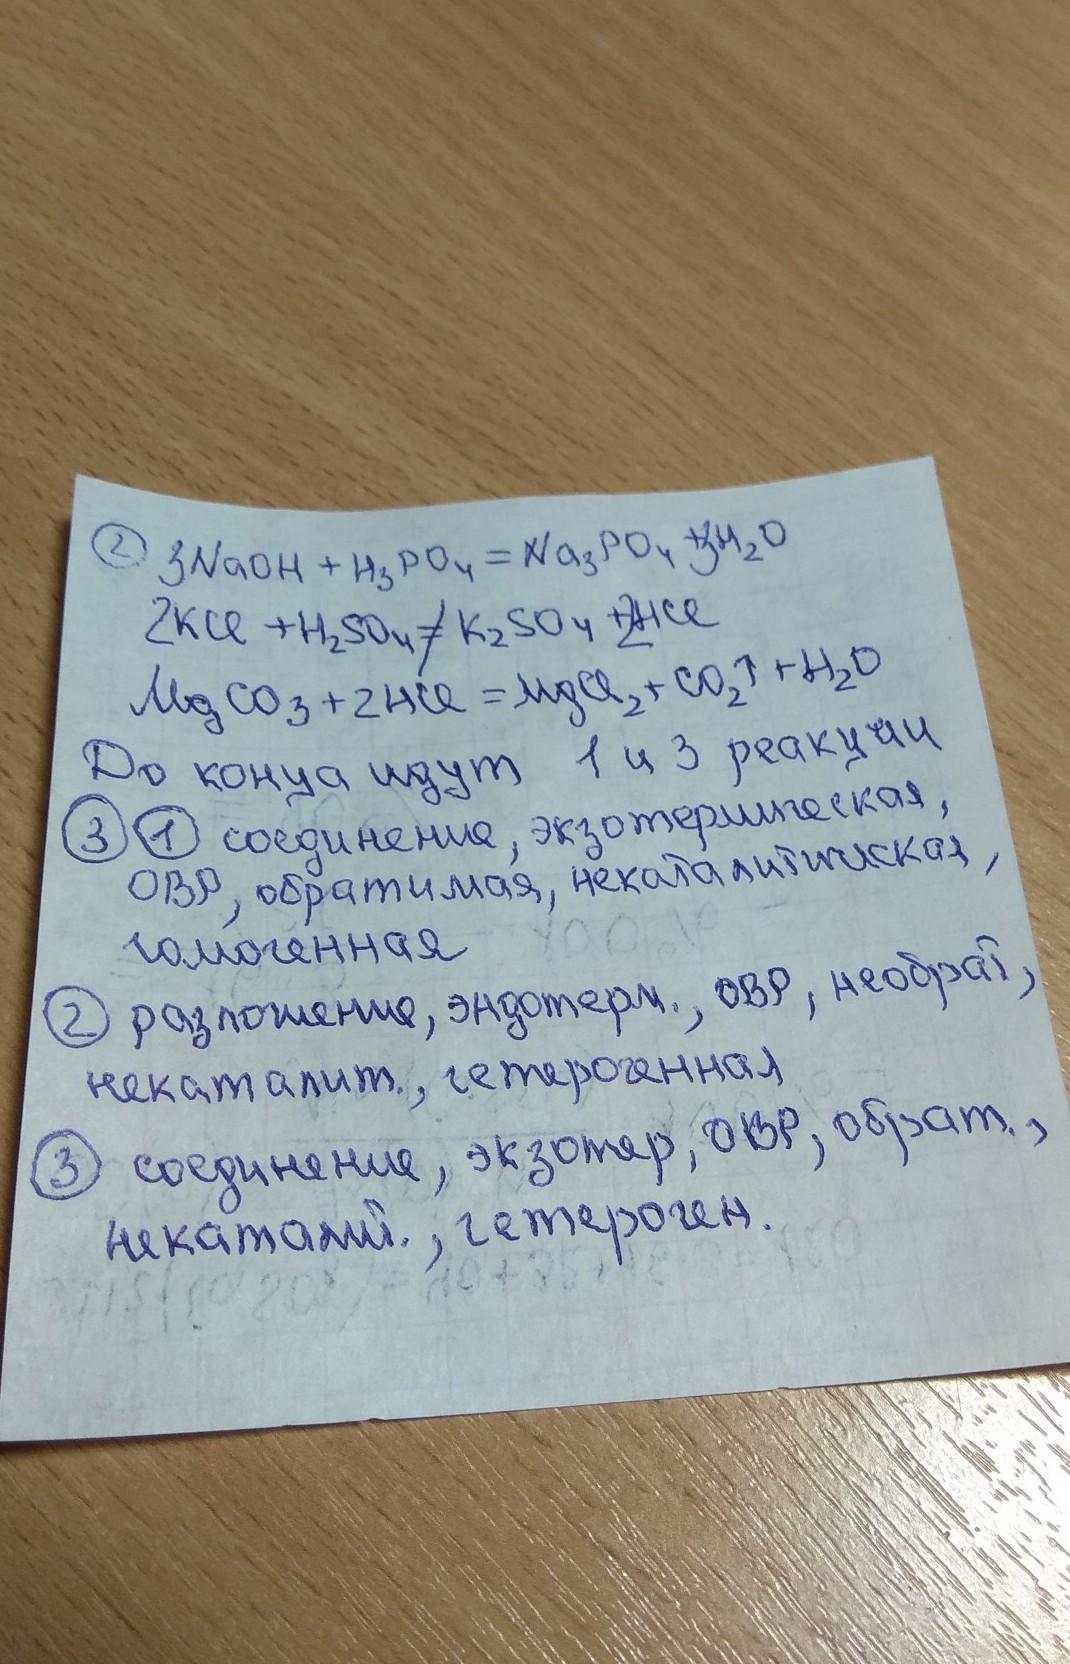 ② 3NaOH + H₃PO₄ = Na₃PO₄ + 3H₂O
2KCl + H₂SO₄ ≠ K₂SO₄ + 2HCl
MgCO₃ + 2HCl = MgCl₂ + CO₂↑ + H₂O
До конца идут 1 и 3 реакции
③ ① соединение, экзотермическая,
ОВР, обратимая, некаталитическая,
гомогенная
② разложение, эндотерм., ОВР, необрат,
некаталит., гетерогенная
③ соединение, экзотер, ОВР, обрат.,
некаталит., гетероген.